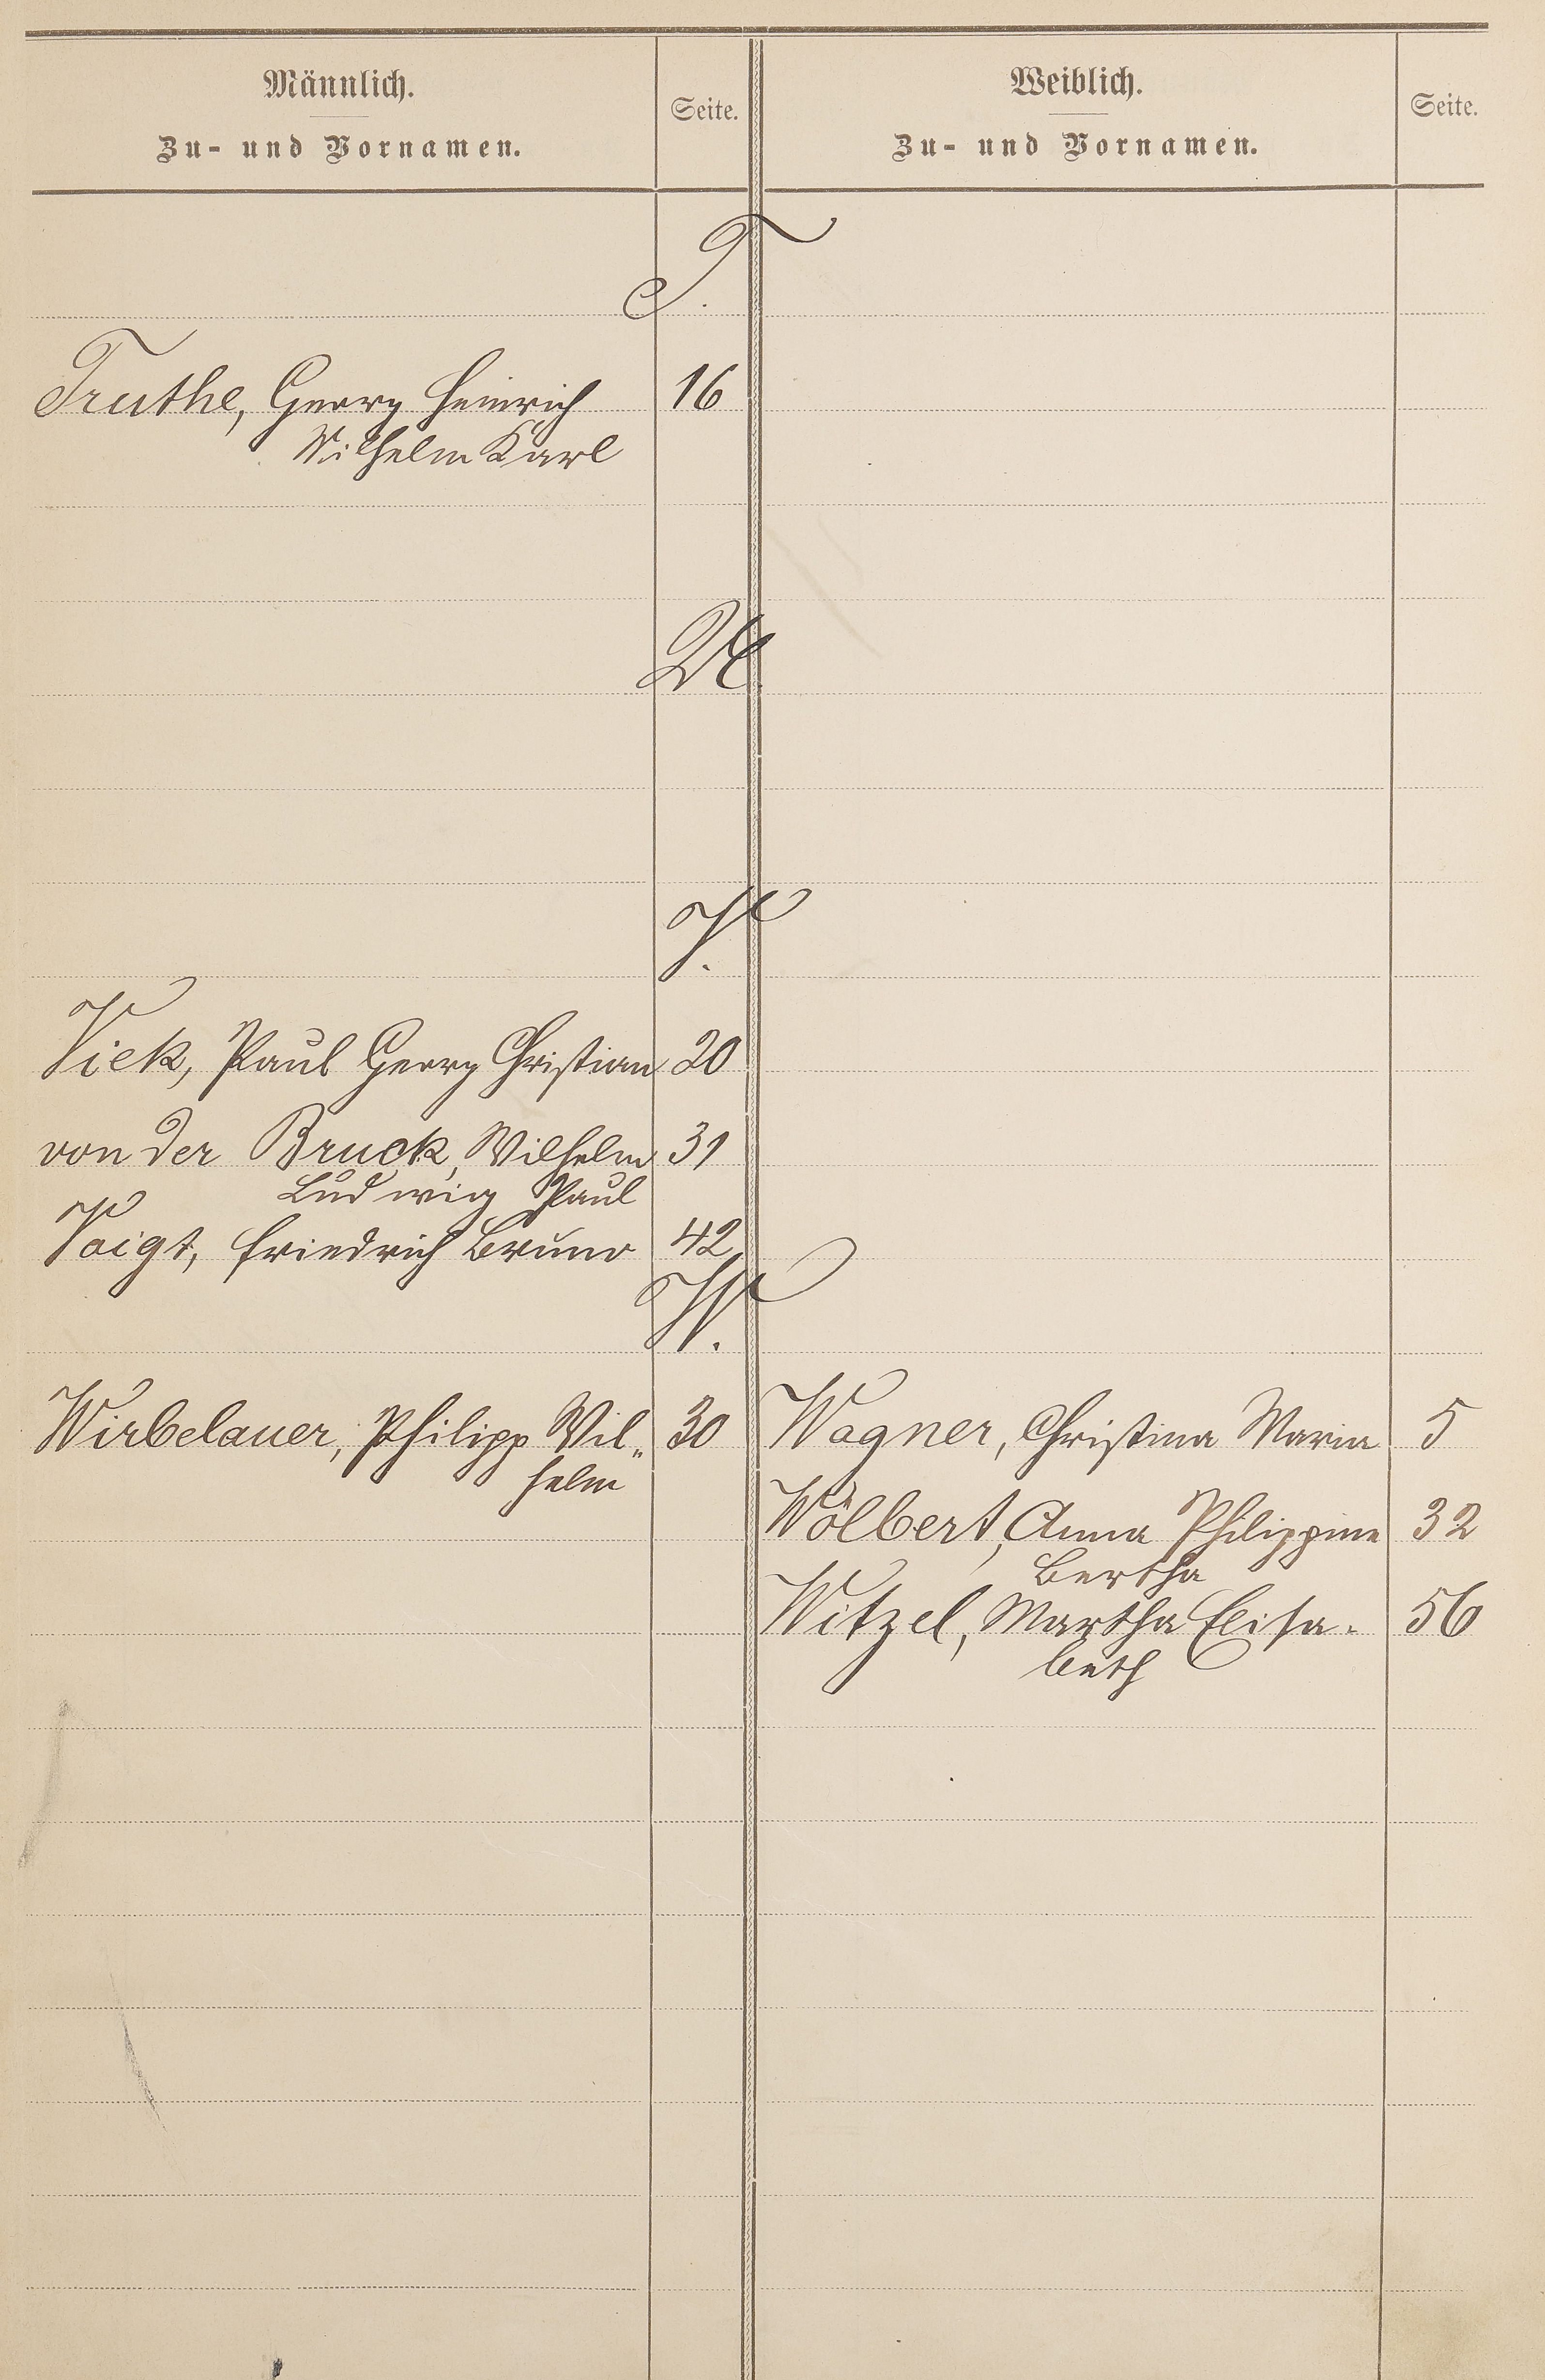 Männlich.
Zu- und Vornamen.
Seite.
Weiblich.
Zu- und Vornamen.
Seite.
T.
Truthe, Georg Heinrich 16
Wilhelm Karl
U.
V.
Viek, Paul Georg Christian 20
von der Bruck, Wilhelm 31
Ludwig Paul
Voigt, Friedrich Bruno 42
W.
Wirbelauer, Philipp Wil„ 30 Wagner, Christina Maria 5
helm
Wölbert, Anna Philippine 32
Bertha
Witzel, Martha Elisa- 56
beth